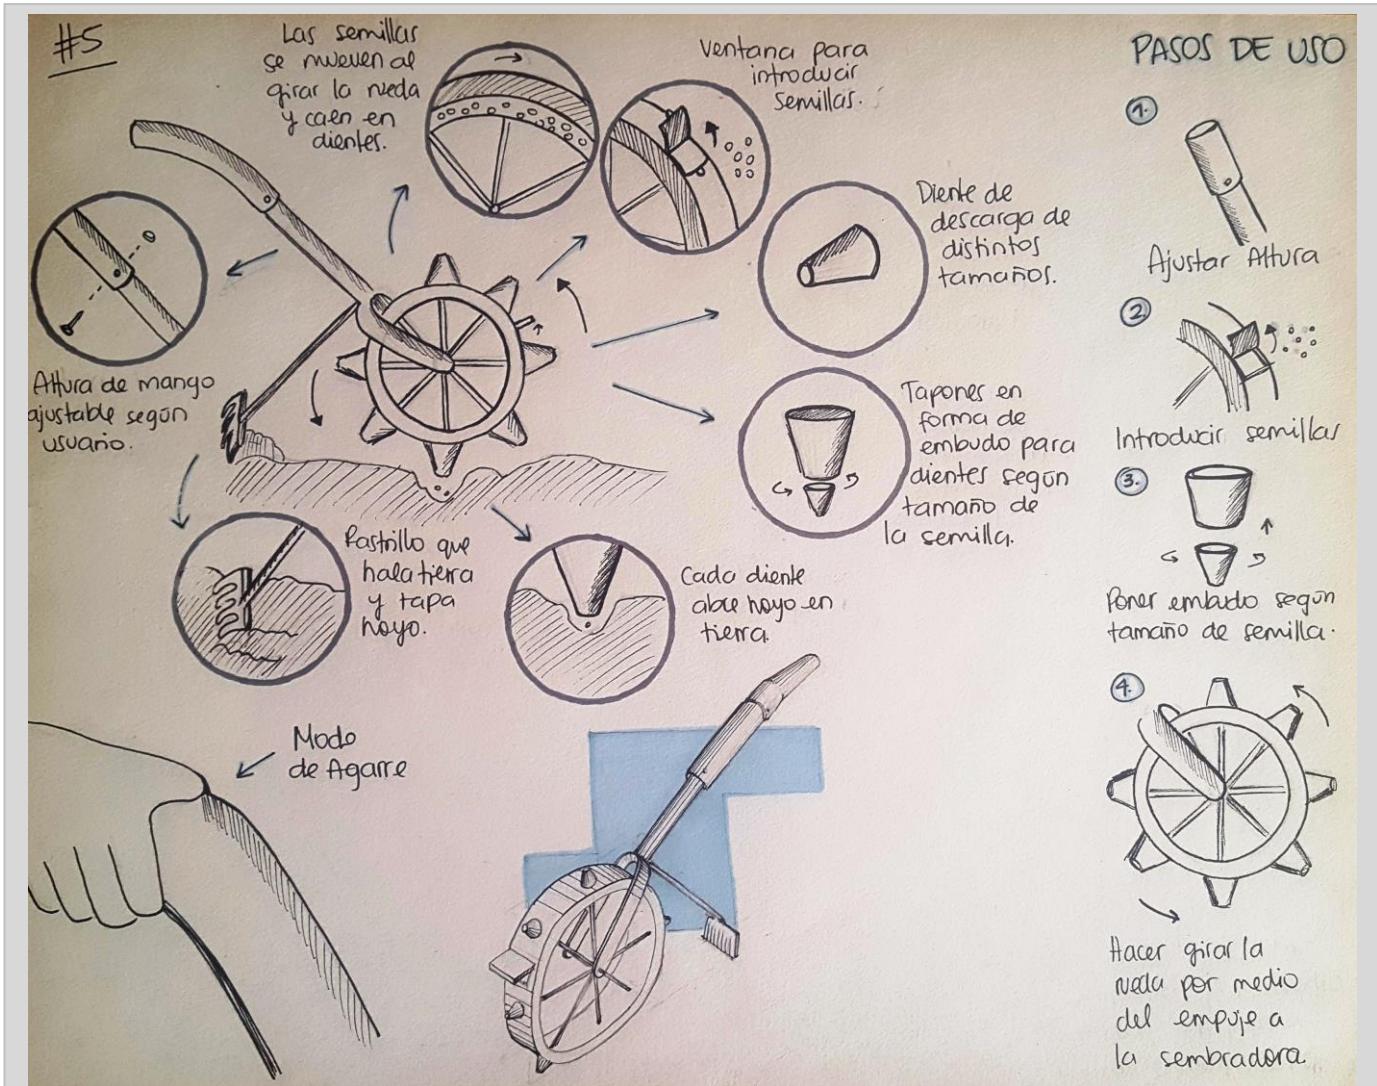 #5
Las semillas
se mueven al
girar la rueda
y caen en
dientes.
Ventana para
introducir
semillas.
Diente de
descarga de
distintos
tamaños.
Altura de mango
ajustable según
usuario.
Tapones en
forma de
embudo para
dientes según
tamaño de
la semilla.
Rastrillo que
hala tierra
y tapa
hoyo.
Cada diente
abre hoyo en
tierra.
Modo
de Agarre
PASOS DE USO
1.
Ajustar Altura
2.
Introducir semillas
3.
Poner embudo según
tamaño de semilla.
4.
Hacer girar la
rueda por medio
del empuje a
la sembradora.